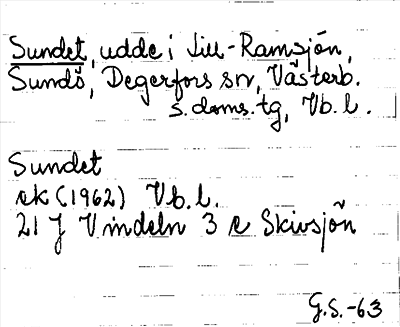 Sundet, udde i Lill-Ramsjön,
Sundö, Degerfors sn, Västerb.
s. doms. tg, Vb. l.
Sundet
ek (1962) Vb. l.
21 J Vindeln 3 e Skivsjön
G.S.-63